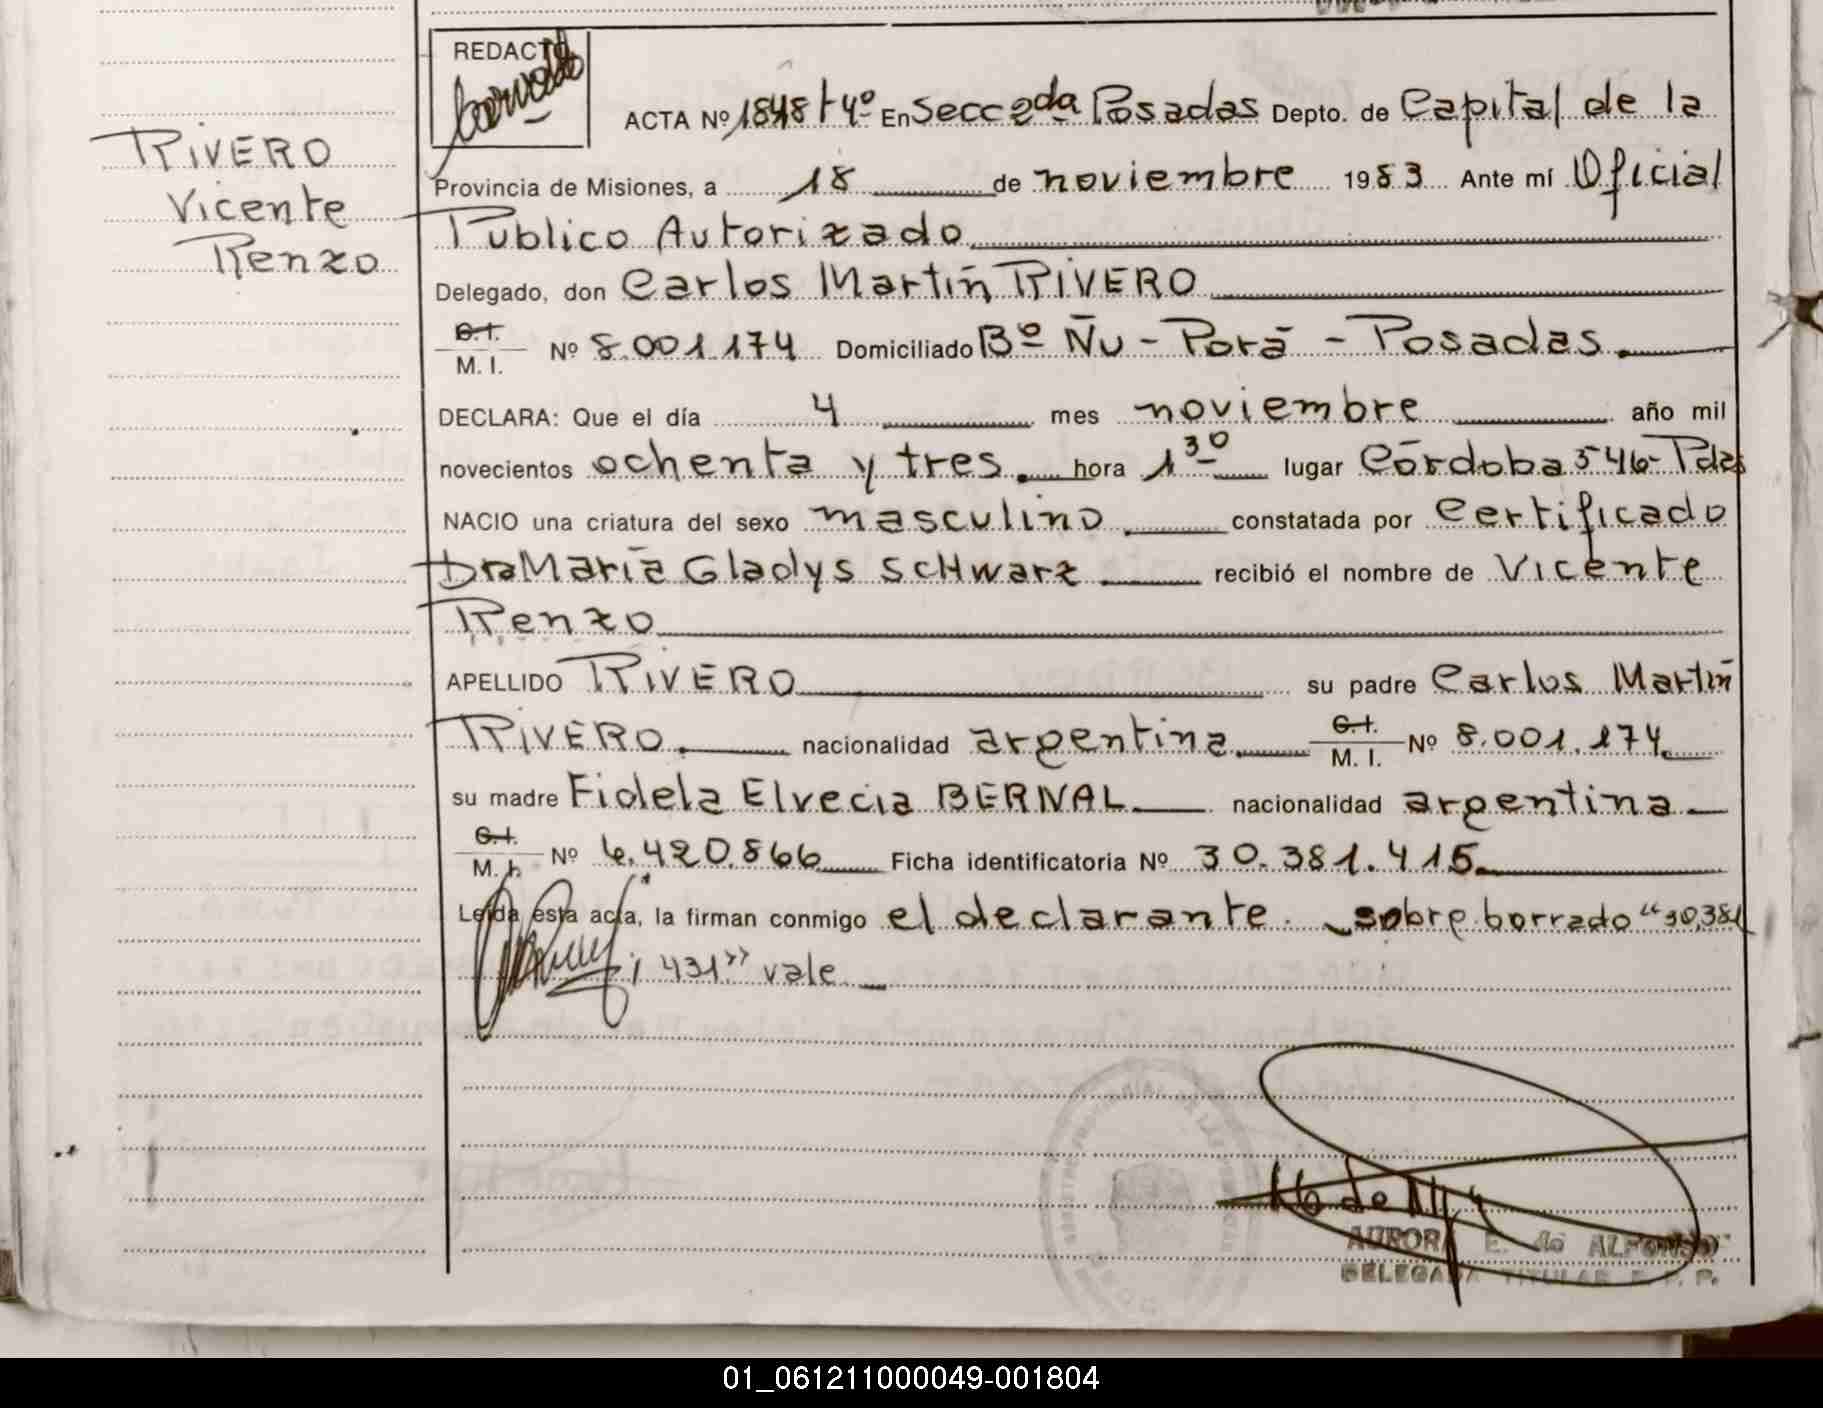 REDACTO
ACTA Nº 1848 t 4º En Secc 2da Posadas Depto. de Capital de la
RIVERO
Vicente
Renzo
Provincia de Misiones, a 18 de noviembre 1983 Ante mí Oficial
Publico Autorizado
Delegado, don Carlos Martín RIVERO
C.I. M. I. Nº 8.001.174 Domiciliado Bº Ñu - Porá - Posadas.
DECLARA: Que el día 4 mes noviembre año mil
novecientos ochenta y tres. hora 1 30 lugar Córdoba 546- Pdas
NACIO una criatura del sexo masculino constatada por Certificado
Dra María Gladys SCHwarz recibió el nombre de Vicente
Renzo
APELLIDO RIVERO su padre Carlos Martín
RIVERO. nacionalidad argentina. C.I. M. I. Nº 8.001.174.
su madre Fidela Elvecia BERNAL nacionalidad argentina
C.I. M. I. Nº 6.420.866 Ficha identificatoria Nº 30.381.415.
Leída esta acta, la firman conmigo el declarante. sobre borrado "30,381
; 431" vale
AURORA E. de ALFONSO
DELEGADA TITULAR R. P. P.
01_061211000049-001804